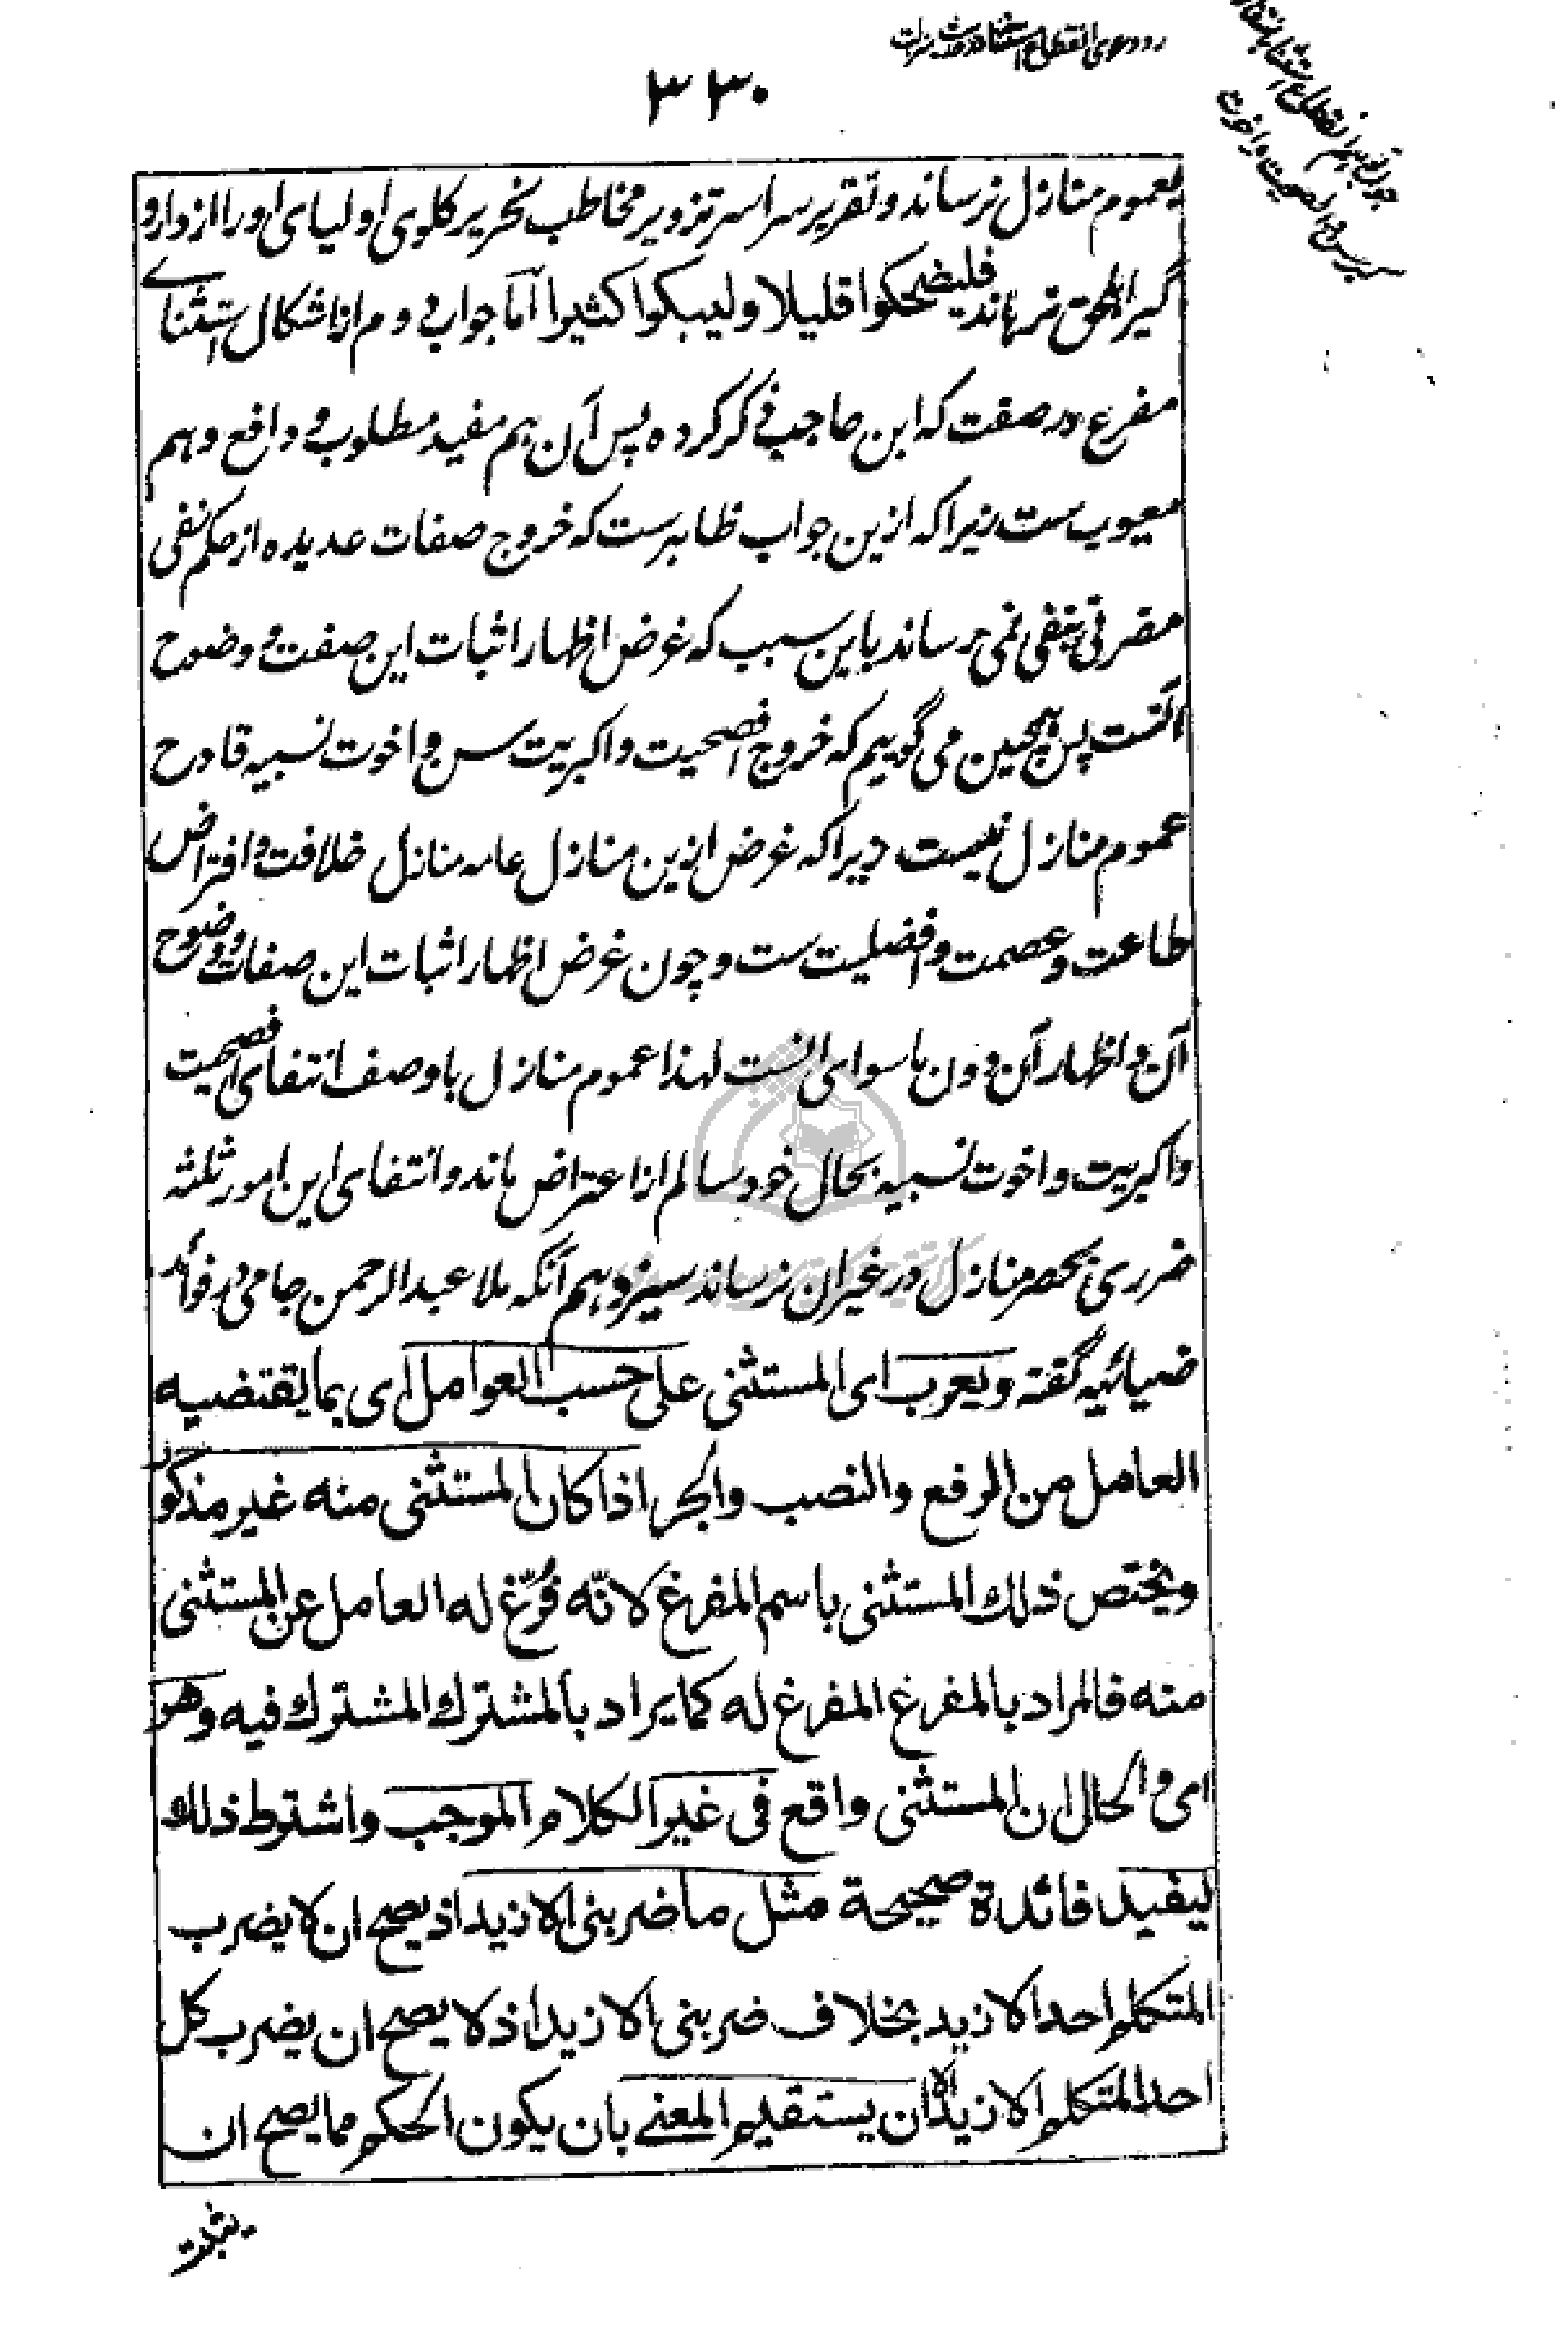 رد دعوی انقطاع استثنا در حدیث منزلت
۳۳۰
بعموم منازل نرساند و تقریر سراسر تزویر مخاطب نحریر گلوی اولیای او را از دار و
گیر اهل حق نرهاند فلیضحکوا قلیلا ولیبکوا کثیرا اما جواب دوم از اشکال استثنای
مفرغ در صفت که ابن حاجب ذکر کرده پس آن هم مفید مطلوب و دافع وهم
معیوب ست زیرا که ازین جواب ظاهرست که خروج صفات عدیده از حکم نفی
مضرتی بنفی نمی رساند باین سبب که غرض اظهار اثبات این صفت و وضوح
آنست پس همچنین می گوییم که خروج افصحیت و اکبریت سن و اخوت نسبیه قادح
عموم منازل نیست زیرا که غرض ازین منازل عامه منازل خلافت و افتراض
طاعت و عصمت و افضلیت ست و چون غرض اظهار اثبات این صفات و وضوح
آن و اظهار آن دون ماسوای انست لهذا عموم منازل با وصف انتفای افصحیت
و اکبریت و اخوت نسبیه بحال خود سالم از اعتراض ماند و انتفای این امور ثلثه
ضرری بحصر منازل در غیر ان نرساند سیزدهم آنکه ملا عبد الرحمن جامی در فوائد
ضیائیه گفته ویعرب ای المستثنی علی حسب العوامل ای بما یقتضیه
العامل من الرفع والنصب والجر اذا کان المستثنی منه غیر مذکور
ویختص ذلك المستثنی باسم المفرغ لانّه فُرِّغ له العامل عن المستثنی
منه فالمراد بالمفرغ المفرغ له کما یراد بالمشترك المشترك فیه وهو
ای والحال ان المستثنی واقع فی غیر الکلام الموجب واشترط ذلك
لیفید فائدة صحیحة مثل ما ضربنی الا زید اذ یصح ان لا یضرب
المتکلم احد الا زید بخلاف ضربنی الا زید اذ لا یصح ان یضرب کل
احد المتکلم الا زید الا ان یستقیم المعنے بان یکون الحکم مما یصح ان
یثبت